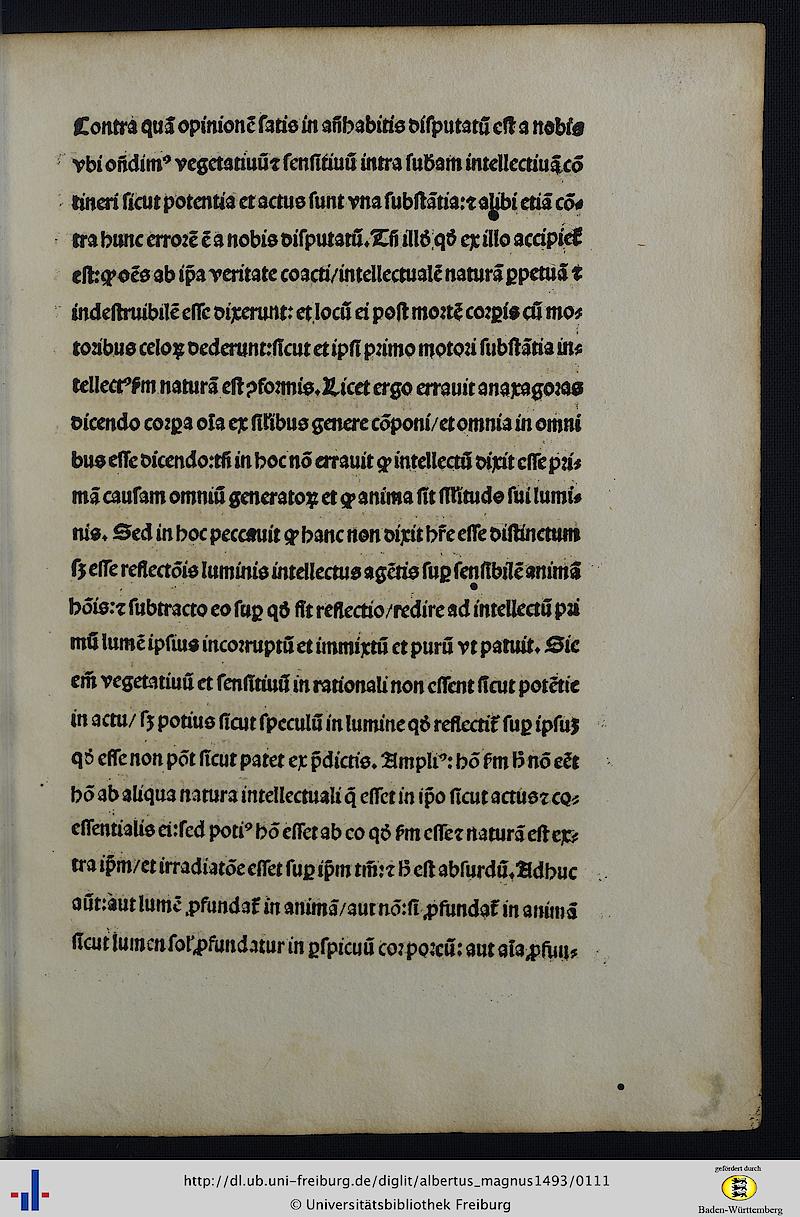 Contra quā opinionē satis in añhabitis disputatū est a nobis
vbi oñdimꝰ vegetatiuū ⁊ sensitiuū intra subam intellectiuā cō
tineri sicut potentia et actus sunt vna substātia: ⁊ alibi etiā cō⸗
tra hunc errorē ē a nobis disputatū. Tñ illđ qđ ex illo accipiet̄
est: ꝙ oēs ab ip̄a veritate coacti/ intellectualē naturā ꝑpetuā ⁊
indestruibilē esse dixerunt: et locū ei post mortē corꝑis cū mo⸗
toribus celoꝝ dederunt: sicut et ipsi primo motori substātia in⸗
tellectꝰ ẜm naturā est ꝯformis. Licet ergo errauit anaxagoras
dicendo corꝑa oīa ex silībus genere cōponi/ et omnia in omni
bus esse dicendo: tñ in hoc nō errauit ꝙ intellectū dixit esse pri⸗
mā causam omniū generatoꝝ et ꝙ anima sit sīlitudo sui lumi⸗
nis. Sed in hoc peccauit ꝙ hanc non dixit hr̄e esse distinctum
sꝫ esse reflectōis luminis intellectus agētis suꝑ sensibilē animā
hōis: ⁊ subtracto eo suꝑ qđ fit reflectio/ redire ad intellectū pri
mū lumē ipsius incorruptū et immixtū et purū vt patuit. Sic
em̄ vegetatiuū et sensitiuū in rationali non essent sicut potētie
in actu/ sꝫ potius sicut speculū in lumine qđ reflectit̄ suꝑ ipsuꝫ
qđ esse non pōt sicut patet ex p̄dictis. Ampliꝰ: hō ẜm ħ nō eēt
hō ab aliqua natura intellectuali q̄ esset in ip̄o sicut actus ⁊ co⸗
essentialis ei: sed potiꝰ hō esset ab eo qđ ẜm esse ⁊ naturā est ex⸗
tra ip̄m/ et irradiatōe esset suꝑ ip̄m tm̄: ⁊ ħ est absurdū. Adhuc
aūt: aut lumē ꝓfundat̄ in animā/ aut nō: si ꝓfundat̄ in animā
sicut lumen sol' ꝓfundatur in ꝑspicuū corporeū: aut aīa ꝓfun⸗
http://dl.ub.uni-freiburg.de/diglit/albertus_magnus1493/0111
© Universitätsbibliothek Freiburg
gefördert durch
Baden-Württemberg